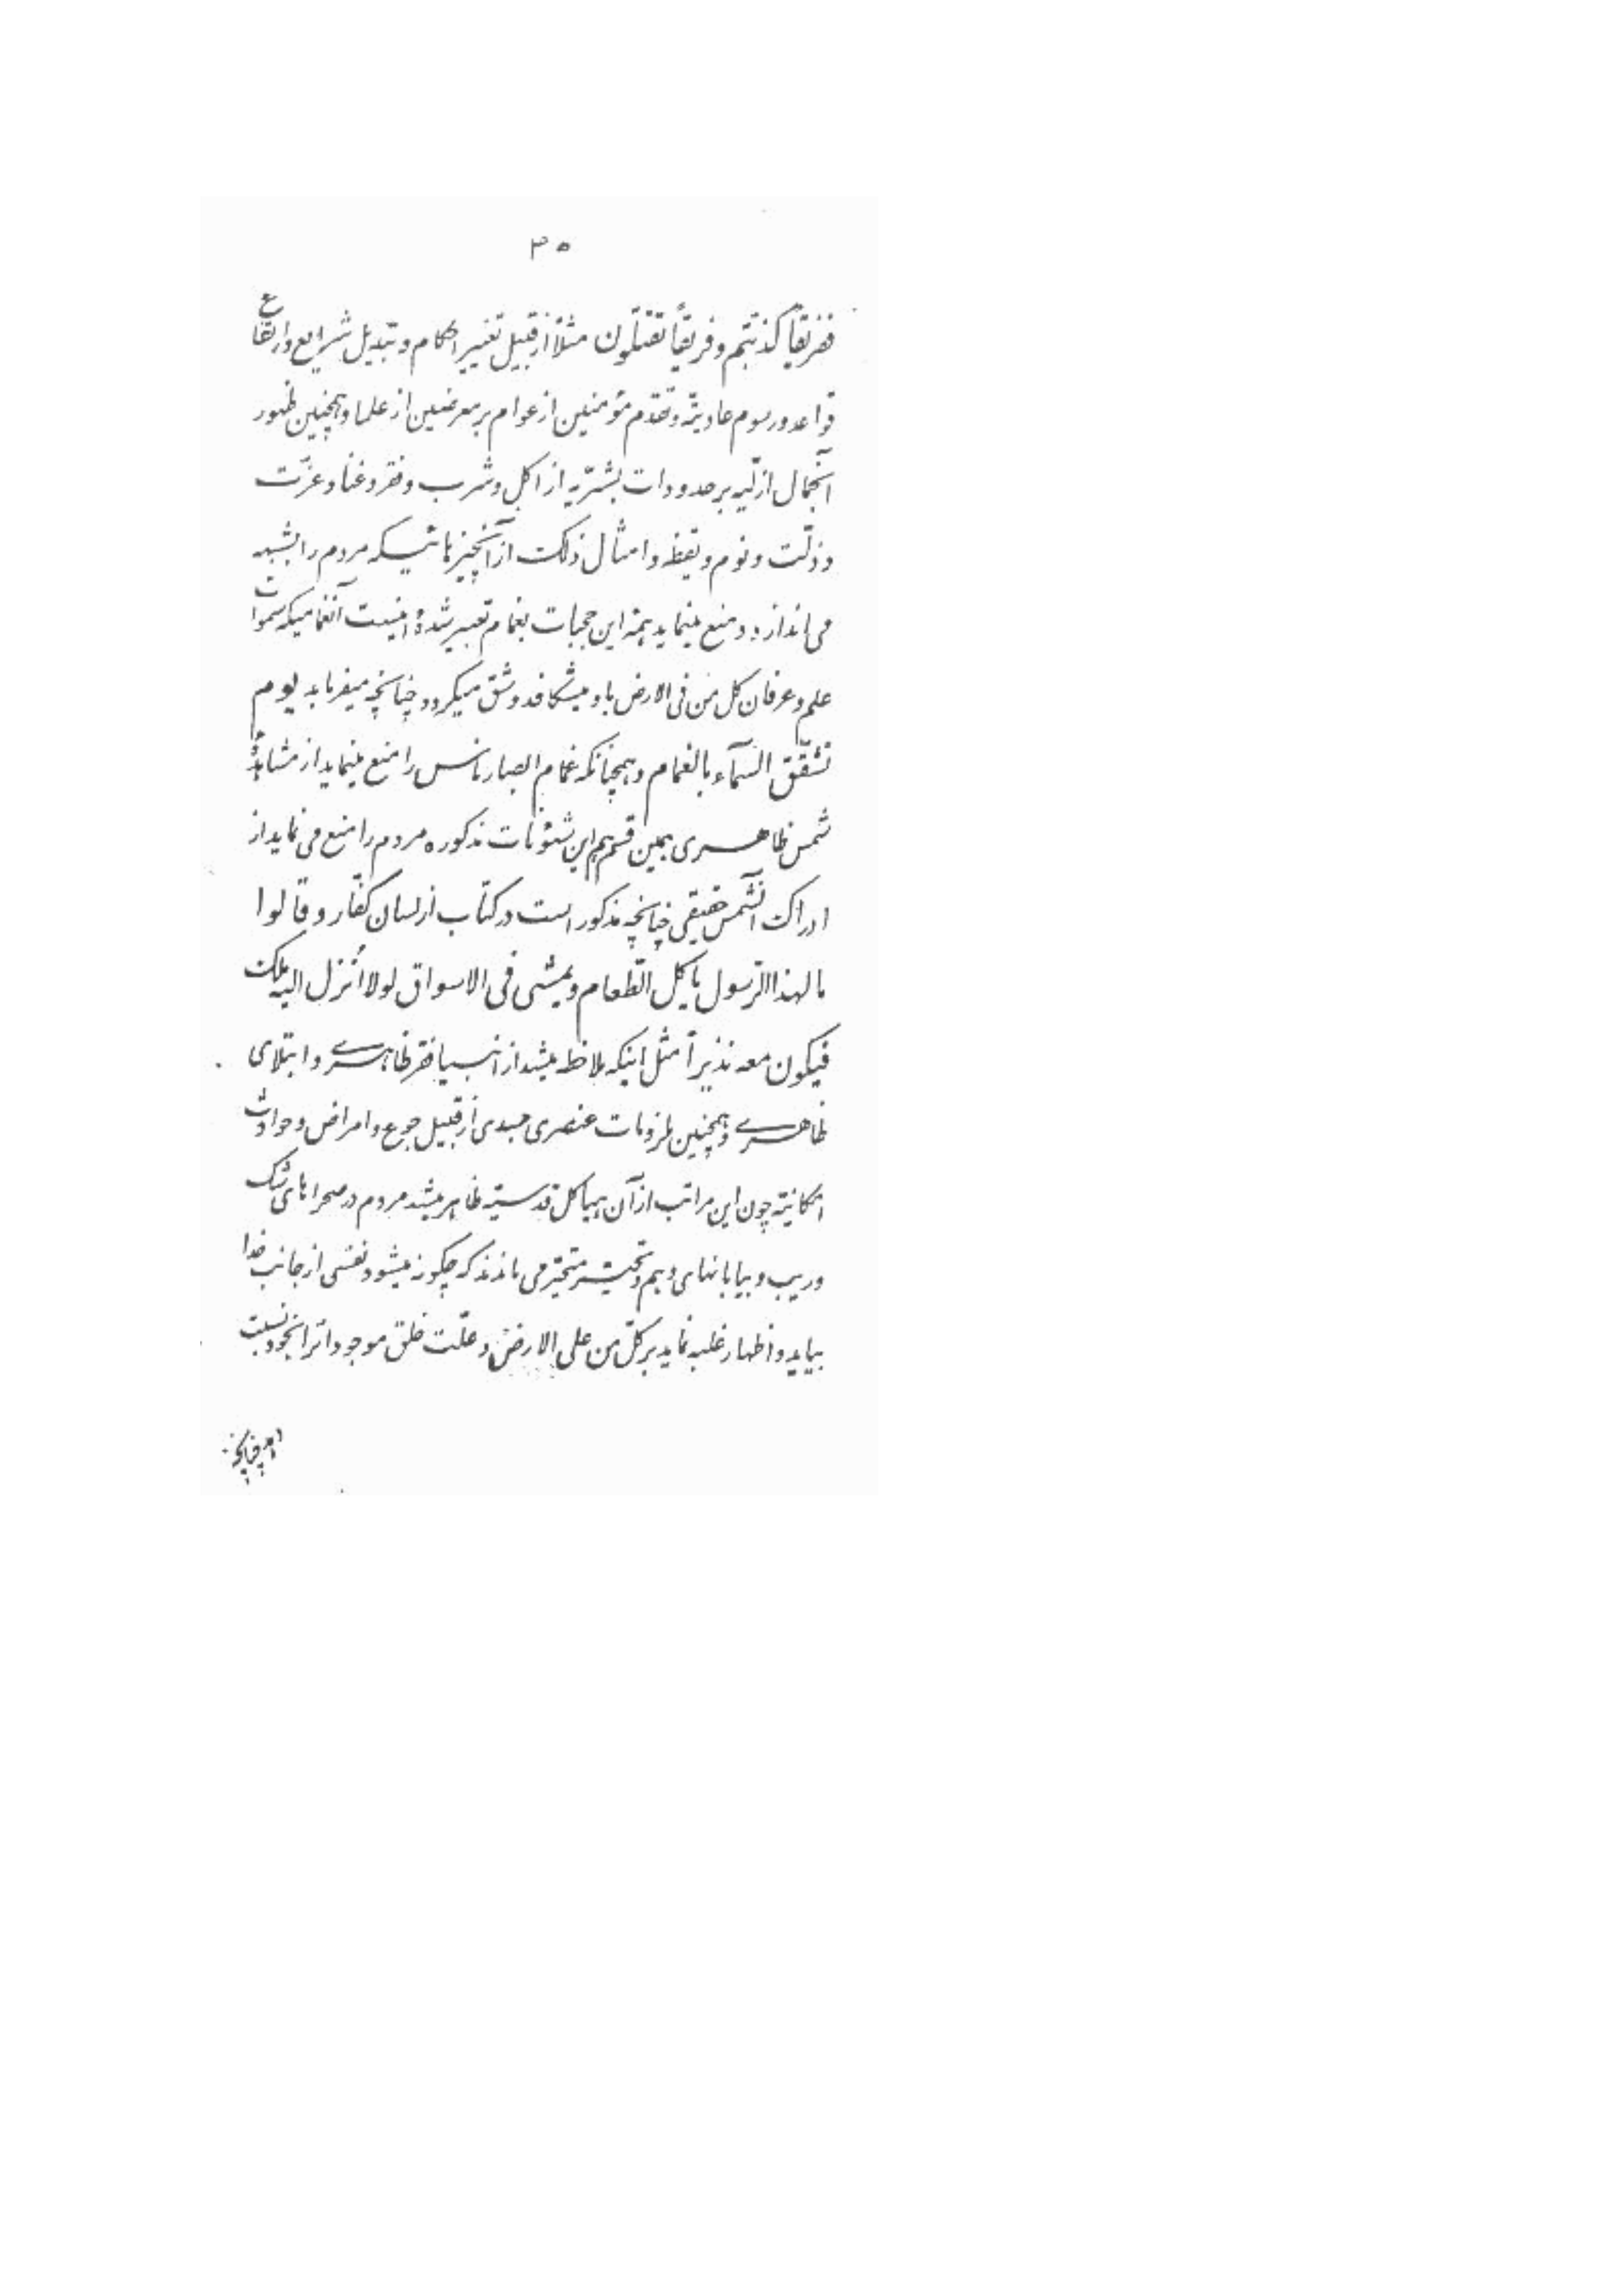 ۳۵
ففریقاً کذّبتم و فریقاً تقتلون مثلاً از قبیل تغییر احکام و تبدیل شرایع و ارتفاع
قواعد و رسوم عادیّه و تقدّم مؤمنین از عوام بر معرضین از علما و همچنین ظهور
آنجمال ازلیّه بر حدودات بشریّه از اکل و شرب و فقر و غنا و عزّت
و ذلّت و نوم و یقظه و امثال ذلک از آنچیزهائیکه مردم را بشبهه
می‌اندازد و منع مینماید همهٔ این حجبات بغمام تعبیر شده اینست آنغمامیکه سموات
علم و عرفان کل من فی الارض باو میشکافد و شق میگردد چنانچه میفرماید یوم
تشقّق السّمآء بالغمام و همچنانکه غمام ابصار ناس را منع مینماید از مشاهدهٔ
شمس ظاهری همین قسم هم این شئونات مذکوره مردم را منع می نماید از
ادراک آنشمس حقیقی چنانچه مذکور است در کتاب از لسان کفّار و قالوا
ما لهذا الرّسول یأکل الطّعام و یمشی فی الاسواق لولا أنزل الیه ملک
فیکون معه نذیراً مثل اینکه ملاحظه میشد از انبیا فقر ظاهری و ابتلای
ظاهری و همچنین ملزومات عنصری جسدی از قبیل جوع و امراض و حوادث
امکانیّه چون این مراتب از آن هیاکل قدسیّه ظاهر میشد مردم در صحراهای شک
و ریب و بیابانهای وهم و تحیّر متحیّر می ماندند که چگونه میشود نفسی از جانب خدا
بیاید و اظهار غلبه نماید بر کلّ من علی الارض و علّت خلق موجودات را بخود نسبت